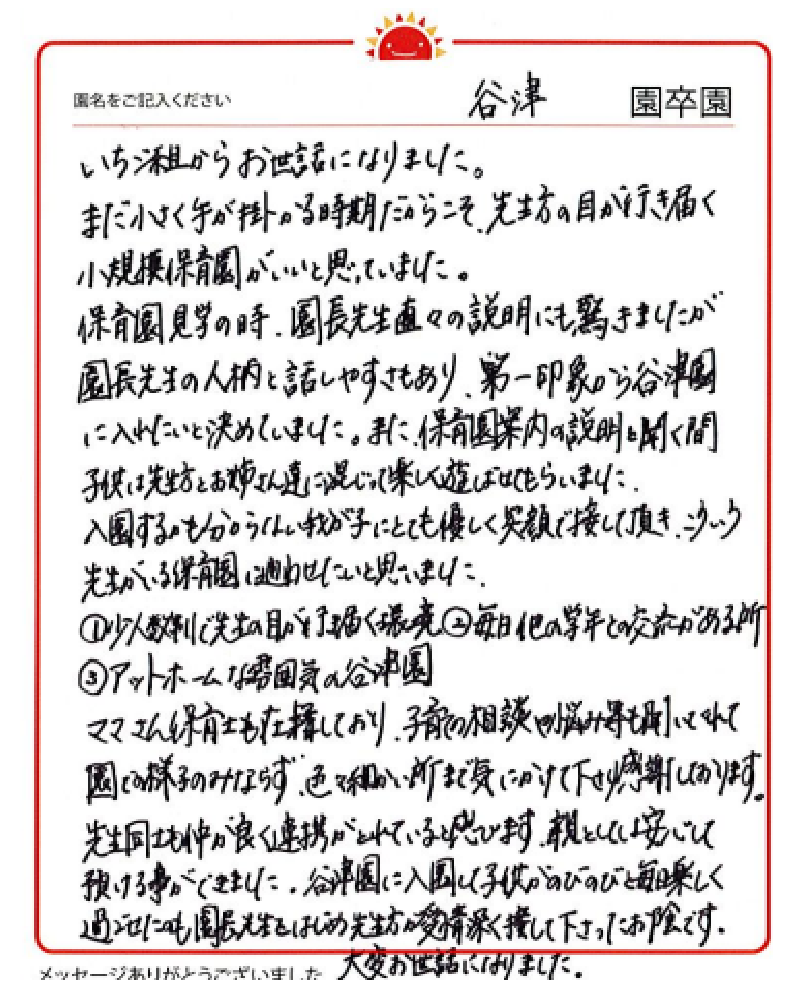 園名をご記入ください 谷津 園卒園
いちご組からお世話になりました。
まだ小さく手が掛かる時期だからこそ、先生方の目が行き届く
小規模保育園がいいと思っていました。
保育園見学の時、園長先生直々の説明にも驚きましたが
園長先生の人柄と話しやすさもあり、第一印象から谷津園
に入れたいと決めていました。また、保育園案内の説明を聞く間
子供は先生方とお姉さん達に混じって楽しく遊ばせてもらいました。
入園するかも分からない我が子にとても優しく笑顔で接して頂き、こういう
先生がいる保育園に通わせたいと思いました。
①少人数制で先生の目が行き届く環境②毎日他の学年との交流がある所
③アットホームな雰囲気の谷津園
ママさん保育士も在籍しており、子育ての相談や悩み等も聞いてくれて
園での様子のみならず、色々細かい所まで気にかけて下さり感謝しております。
先生同士も仲が良く連携がとれていると思います。親としても安心して
預ける事ができました。谷津園に入園して子供がのびのびと毎日楽しく
過ごせたのも園長先生をはじめ先生方が愛情深く接して下さったお陰です。
大変お世話になりました。
メッセージありがとうございました